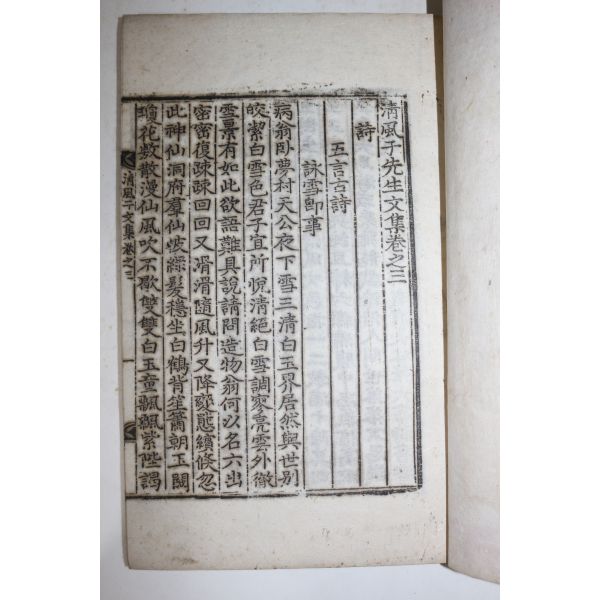 清風子先生文集卷之三
詩
五言古詩
詠雪卽事
病翁臥夢村天公夜下雪三清白玉界居然與世別
皎潔白雪色君子宜所悅清絕白雪調寥亮雲外徹
雪景有如此欲語難具說請問造物翁何以名六出
密密復疎疎回回又滑滑隨風升又降變態續倏忽
此神仙洞府羣仙披綠髮穩坐白鶴背笙簫朝玉闕
瓊花敷散漫仙風吹不歇雙雙白玉童飄飄紫陛謁
清風子文集 卷之三